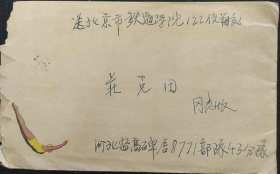 送北京市铁道学院122信箱
庄克田
同志收
河北省高碑店8771部队431分队